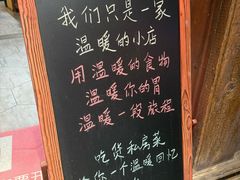 我们只是一家
温暖的小店
用温暖的食物
温暖你的胃
温暖一段旅程
吃货私房菜
你一个温暖回忆